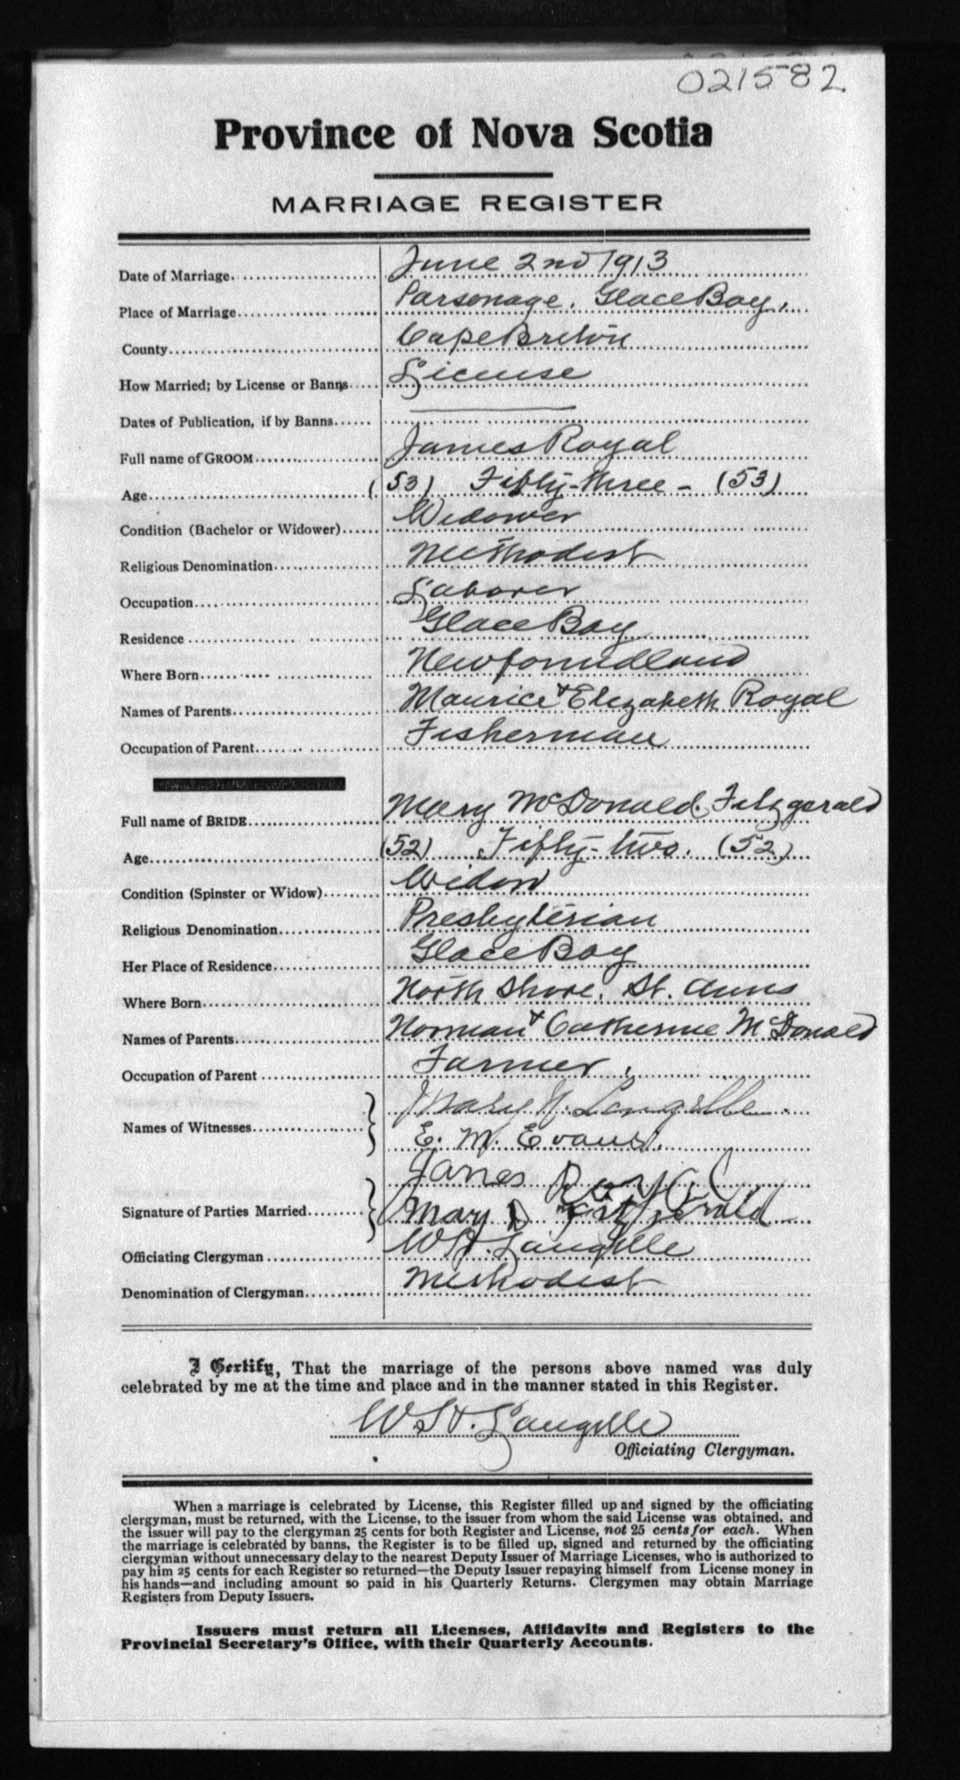 021582
Province of Nova Scotia
MARRIAGE REGISTER
Date of Marriage. June 2nd 1913
Place of Marriage Parsonage, Glace Bay,
County Cape Breton
How Married; by License or Banns License
Dates of Publication, if by Banns
Full name of GROOM James Royal
Age (53) Fifty-three - (53)
Condition (Bachelor or Widower) Widower
Religious Denomination Methodist
Occupation Laborer
Residence Glace Bay
Where Born Newfoundland
Names of Parents Maurice & Elizabeth Royal
Occupation of Parent Fisherman
Full name of BRIDE Mary McDonald Fitzgerald
Age (52) Fifty-two. (52)
Condition (Spinster or Widow) Widow
Religious Denomination Presbyterian
Her Place of Residence Glace Bay
Where Born North Shore, St. Anns
Names of Parents Norman & Catherine McDonald
Occupation of Parent Farmer
Names of Witnesses Mary Langille.
E. M. Evans.
James Royal
Signature of Parties Married Mary D Fitzgerald
Officiating Clergyman W H. Langille
Denomination of Clergyman Methodist
I Certify, That the marriage of the persons above named was duly
celebrated by me at the time and place and in the manner stated in this Register.
Langille
Officiating Clergyman.
When a marriage is celebrated by License, this Register filled up and signed by the officiating
clergyman, must be returned, with the License, to the issuer from whom the said License was obtained, and
the issuer will pay to the clergyman 25 cents for both Register and License, not 25 cents for each. When
the marriage is celebrated by banns, the Register is to be filled up, signed and returned by the officiating
clergyman without unnecessary delay to the nearest Deputy Issuer of Marriage Licenses, who is authorized to
pay him 25 cents for each Register so returned—the Deputy Issuer repaying himself from License money in
his hands—and including amount so paid in his Quarterly Returns. Clergymen may obtain Marriage
Registers from Deputy Issuers.
Issuers must return all Licenses, Affidavits and Registers to the
Provincial Secretary's Office, with their Quarterly Accounts.